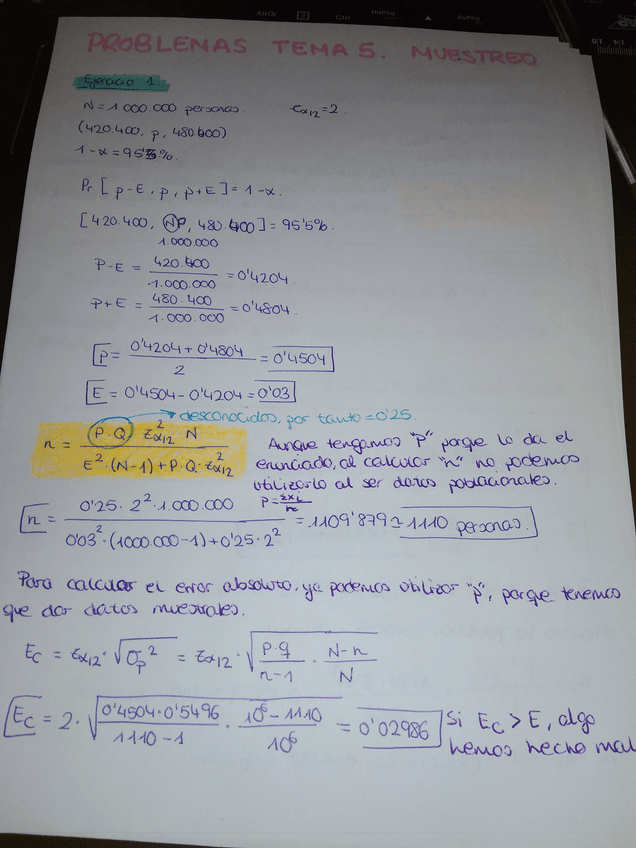 AltGr
Ctrl
RePág
AvPág
PROBLEMAS TEMA 5. MUESTREO
Ejercicio 1.
N = 1.000.000 personas. Zα/2 = 2.
(420.400, p, 480.400)
1-α = 95'5%.
Pr [p-E, p, p+E] = 1-α.
[420.400, NP, 480.400] = 95'5%.
1.000.000
P-E = 420.400 / 1.000.000 = 0'4204
P+E = 480.400 / 1.000.000 = 0'4804
P = 0'4204 + 0'4804 / 2 = 0'4504
E = 0'4504 - 0'4204 = 0'03
desconocidos, por tanto = 0'25.
n = P·Q Z²α/2 N / E²·(N-1) + P·Q·Z²α/2
Aunque tengamos "p" porque lo da el
enunciado, al calcular "n" no podemos
utilizarlo al ser datos poblacionales.
n = 0'25·2²·1.000.000 / 0'03²·(1000.000-1) + 0'25·2² = 1109'879 ≃ 1110 personas.
Para calcular el error absoluto, ya podemos utilizar "p", porque tenemos
que dar datos muestrales.
Ec = Zα/2 · √σp² = Zα/2 · √(p·q / n-1 · N-n / N)
Ec = 2 · √(0'4504·0'5496 / 1110-1 · 10⁶-1110 / 10⁶) = 0'02986
Si Ec > E, algo
hemos hecho mal